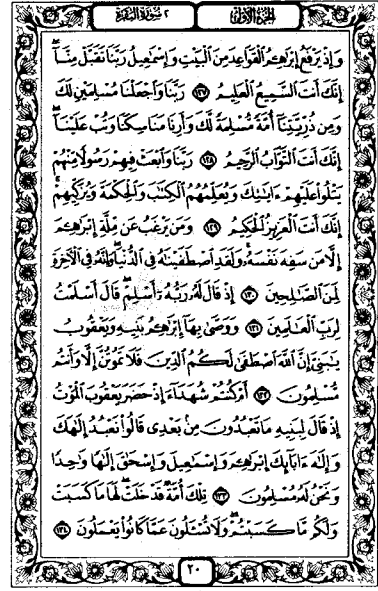 الجزء الأول ٢ سورة البقرة
وَإِذْ يَرْفَعُ إِبْرَٰهِۦمُ ٱلْقَوَاعِدَ مِنَ ٱلْبَيْتِ وَإِسْمَٰعِيلُ رَبَّنَا تَقَبَّلْ مِنَّآ ۖ
إِنَّكَ أَنتَ ٱلسَّمِيعُ ٱلْعَلِيمُ ١٢٧ رَبَّنَا وَٱجْعَلْنَا مُسْلِمَيْنِ لَكَ
وَمِن ذُرِّيَّتِنَآ أُمَّةً مُّسْلِمَةً لَّكَ وَأَرِنَا مَنَاسِكَنَا وَتُبْ عَلَيْنَآ ۖ
إِنَّكَ أَنتَ ٱلتَّوَّابُ ٱلرَّحِيمُ ١٢٨ رَبَّنَا وَٱبْعَثْ فِيهِمْ رَسُولًا مِّنْهُمْ
يَتْلُوا۟ عَلَيْهِمْ ءَايَٰتِكَ وَيُعَلِّمُهُمُ ٱلْكِتَٰبَ وَٱلْحِكْمَةَ وَيُزَكِّيهِمْ ۚ
إِنَّكَ أَنتَ ٱلْعَزِيزُ ٱلْحَكِيمُ ١٢٩ وَمَن يَرْغَبُ عَن مِّلَّةِ إِبْرَٰهِۦمَ
إِلَّا مَن سَفِهَ نَفْسَهُۥ ۚ وَلَقَدِ ٱصْطَفَيْنَٰهُ فِى ٱلدُّنْيَا ۖ وَإِنَّهُۥ فِى ٱلْءَاخِرَةِ
لَمِنَ ٱلصَّٰلِحِينَ ١٣٠ إِذْ قَالَ لَهُۥ رَبُّهُۥٓ أَسْلِمْ ۖ قَالَ أَسْلَمْتُ
لِرَبِّ ٱلْعَٰلَمِينَ ١٣١ وَوَصَّىٰ بِهَآ إِبْرَٰهِۦمُ بَنِيهِ وَيَعْقُوبُ
يَٰبَنِىَّ إِنَّ ٱللَّهَ ٱصْطَفَىٰ لَكُمُ ٱلدِّينَ فَلَا تَمُوتُنَّ إِلَّا وَأَنتُم
مُّسْلِمُونَ ١٣٢ أَمْ كُنتُمْ شُهَدَآءَ إِذْ حَضَرَ يَعْقُوبَ ٱلْمَوْتُ
إِذْ قَالَ لِبَنِيهِ مَا تَعْبُدُونَ مِنۢ بَعْدِى قَالُوا۟ نَعْبُدُ إِلَٰهَكَ
وَإِلَٰهَ ءَابَآئِكَ إِبْرَٰهِۦمَ وَإِسْمَٰعِيلَ وَإِسْحَٰقَ إِلَٰهًا وَٰحِدًا
وَنَحْنُ لَهُۥ مُسْلِمُونَ ١٣٣ تِلْكَ أُمَّةٌ قَدْ خَلَتْ ۖ لَهَا مَا كَسَبَتْ
وَلَكُم مَّا كَسَبْتُمْ ۖ وَلَا تُسْـَٔلُونَ عَمَّا كَانُوا۟ يَعْمَلُونَ ١٣٤
٢٠